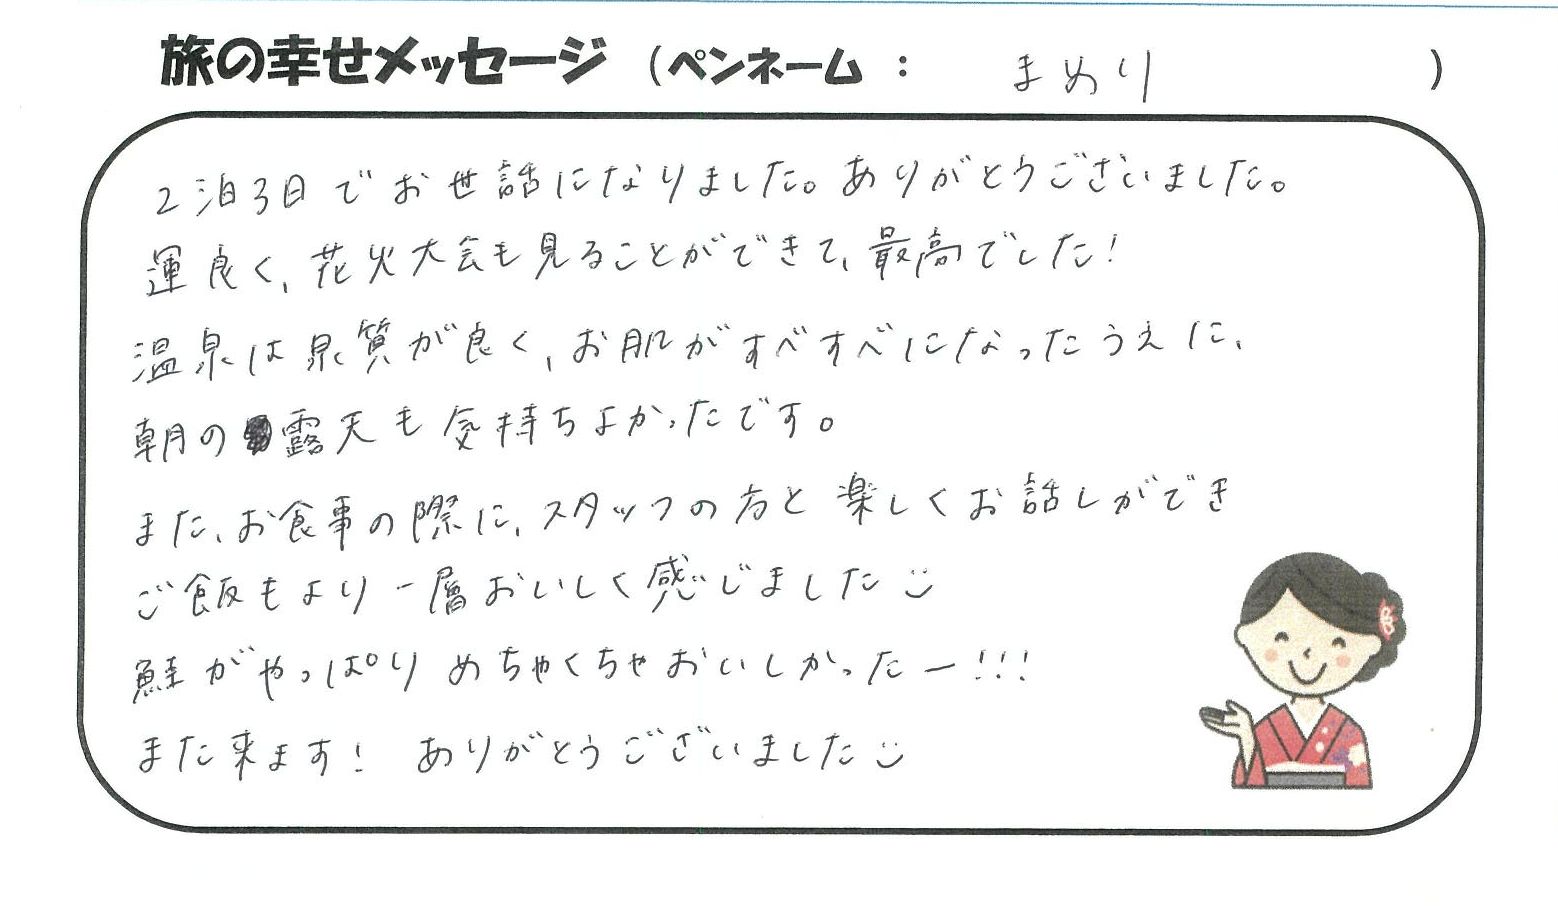 旅の幸せメッセージ （ペンネーム ： まめり ）
2泊3日でお世話になりました。ありがとうございました。
運良く、花火大会も見ることができて、最高でした！
温泉は泉質が良く、お肌がすべすべになったうえに、
朝の露天も気持ちよかったです。
また、お食事の際に、スタッフの方と楽しくお話しができ
ご飯もより一層おいしく感じました
鮭がやっぱりめちゃくちゃおいしかったー!!!
また来ます！ ありがとうございました